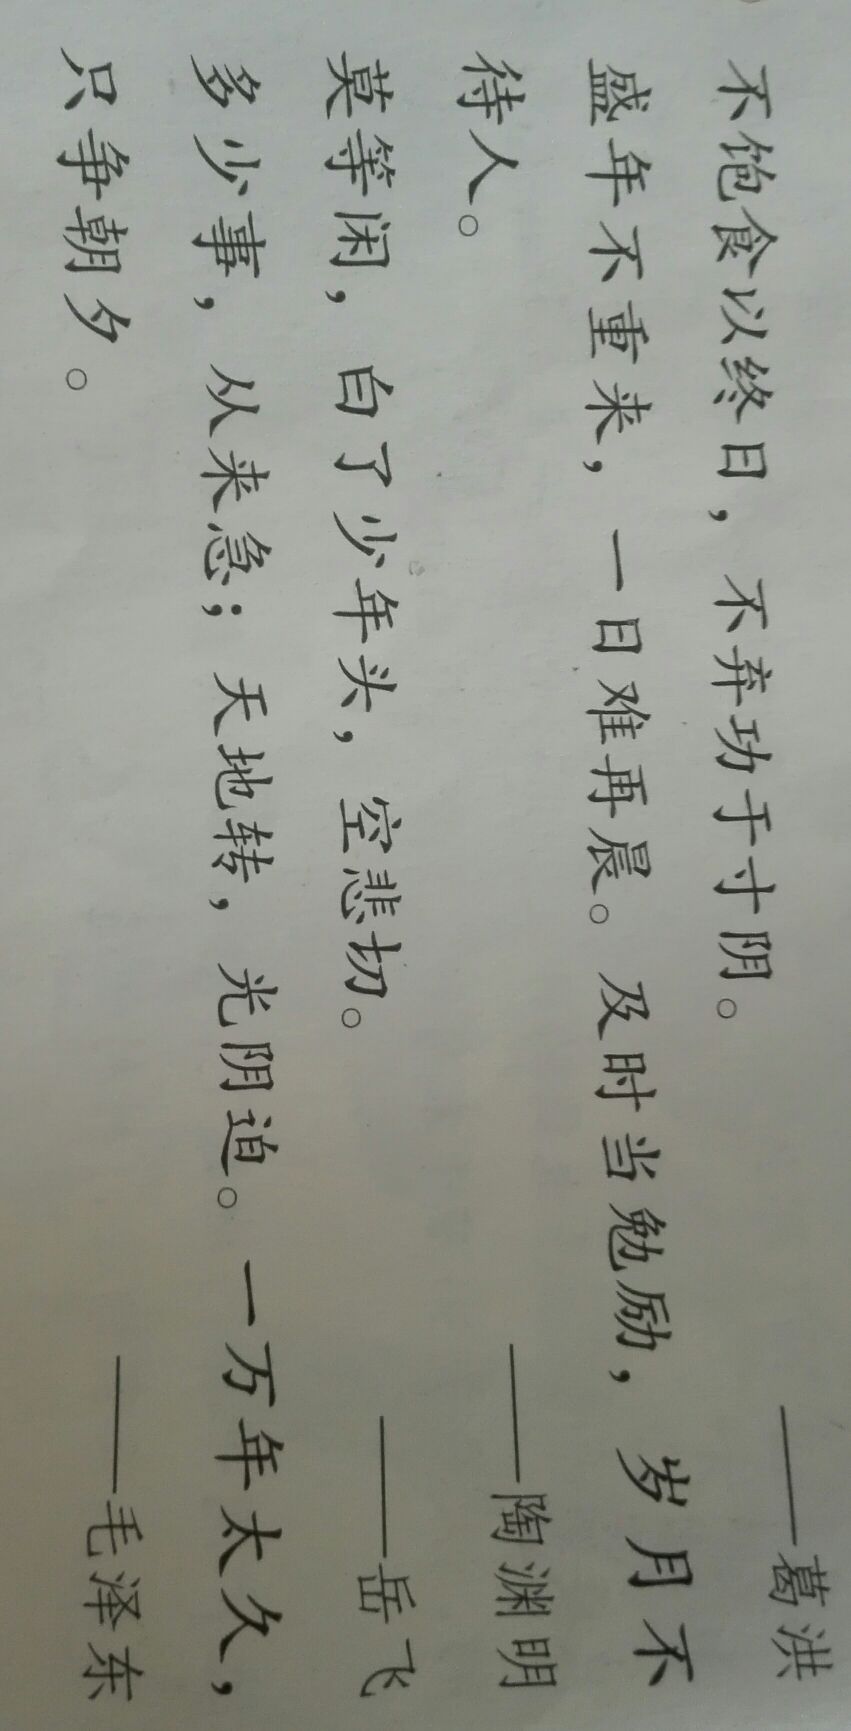 不饱食以终日，不弃功于寸阴。
——葛洪
盛年不重来，一日难再晨。及时当勉励，岁月不
待人。
——陶渊明
莫等闲，白了少年头，空悲切。
——岳飞
多少事，从来急；天地转，光阴迫。一万年太久，
只争朝夕。
——毛泽东